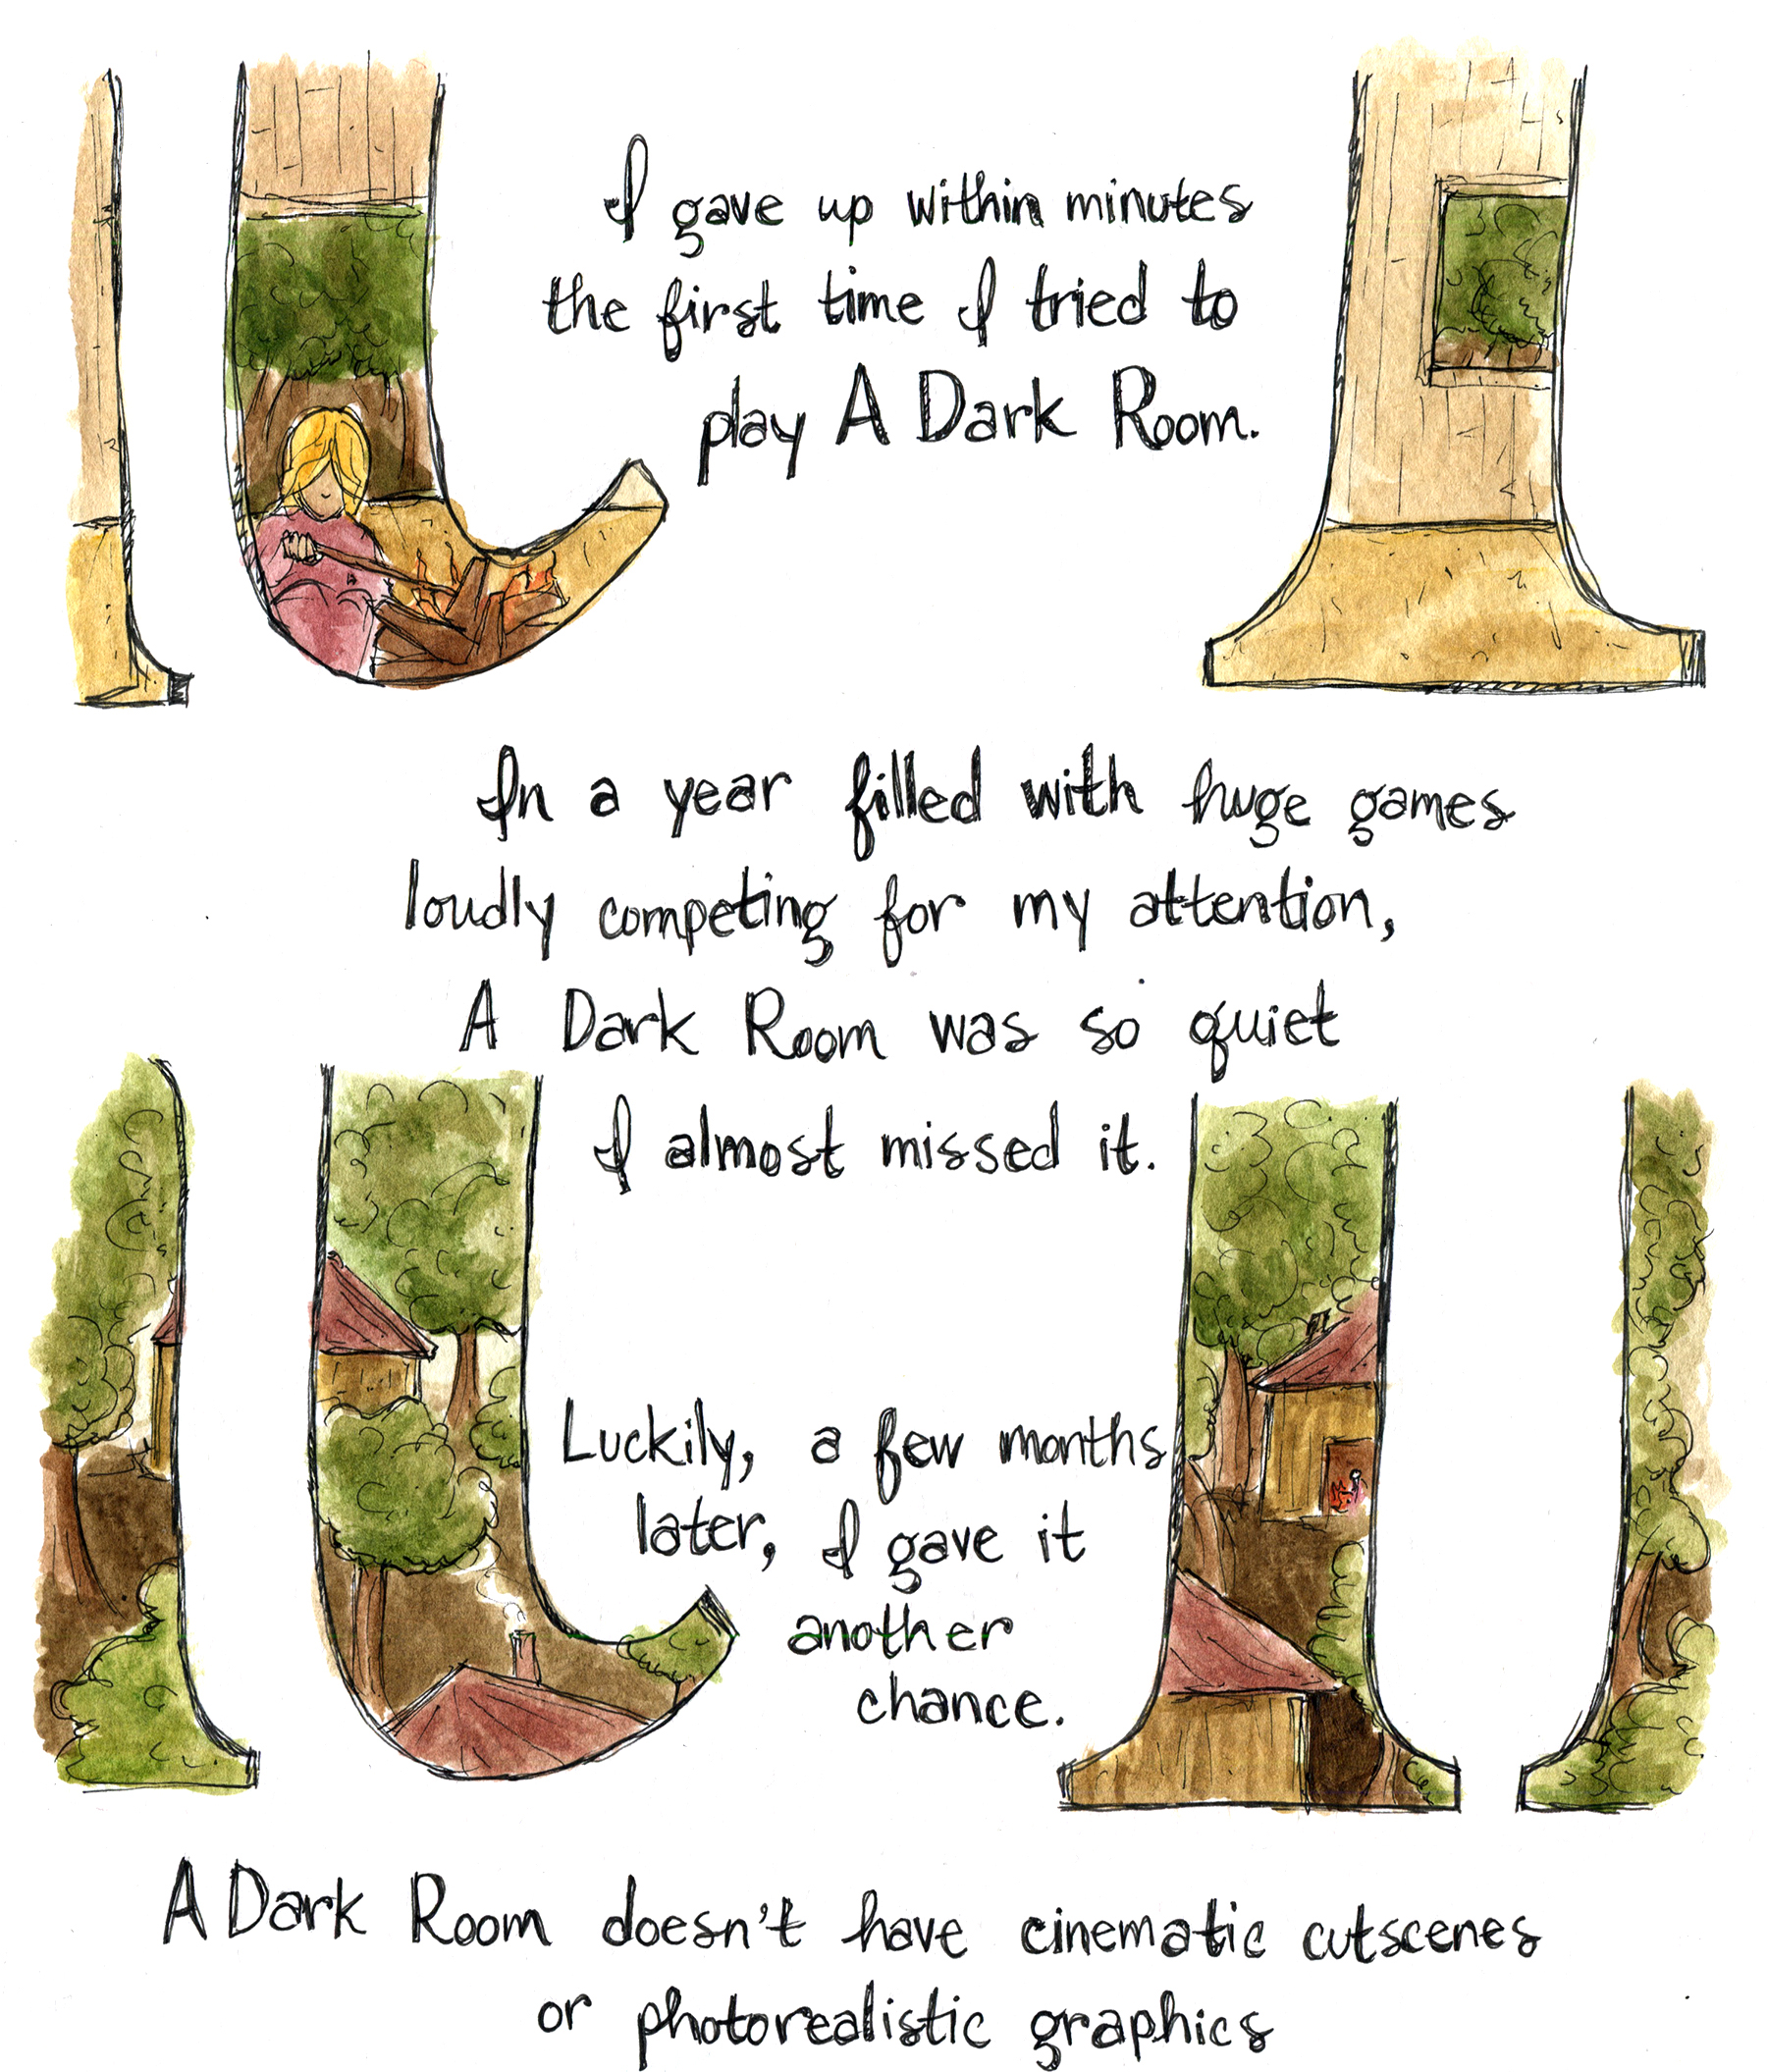 I gave up within minutes
the first time I tried to
play A Dark Room.
In a year filled with huge games
loudly competing for my attention,
A Dark Room was so quiet
I almost missed it.
Luckily, a few months
later, I gave it
another
chance.
A Dark Room doesn't have cinematic cutscenes
or photorealistic graphics